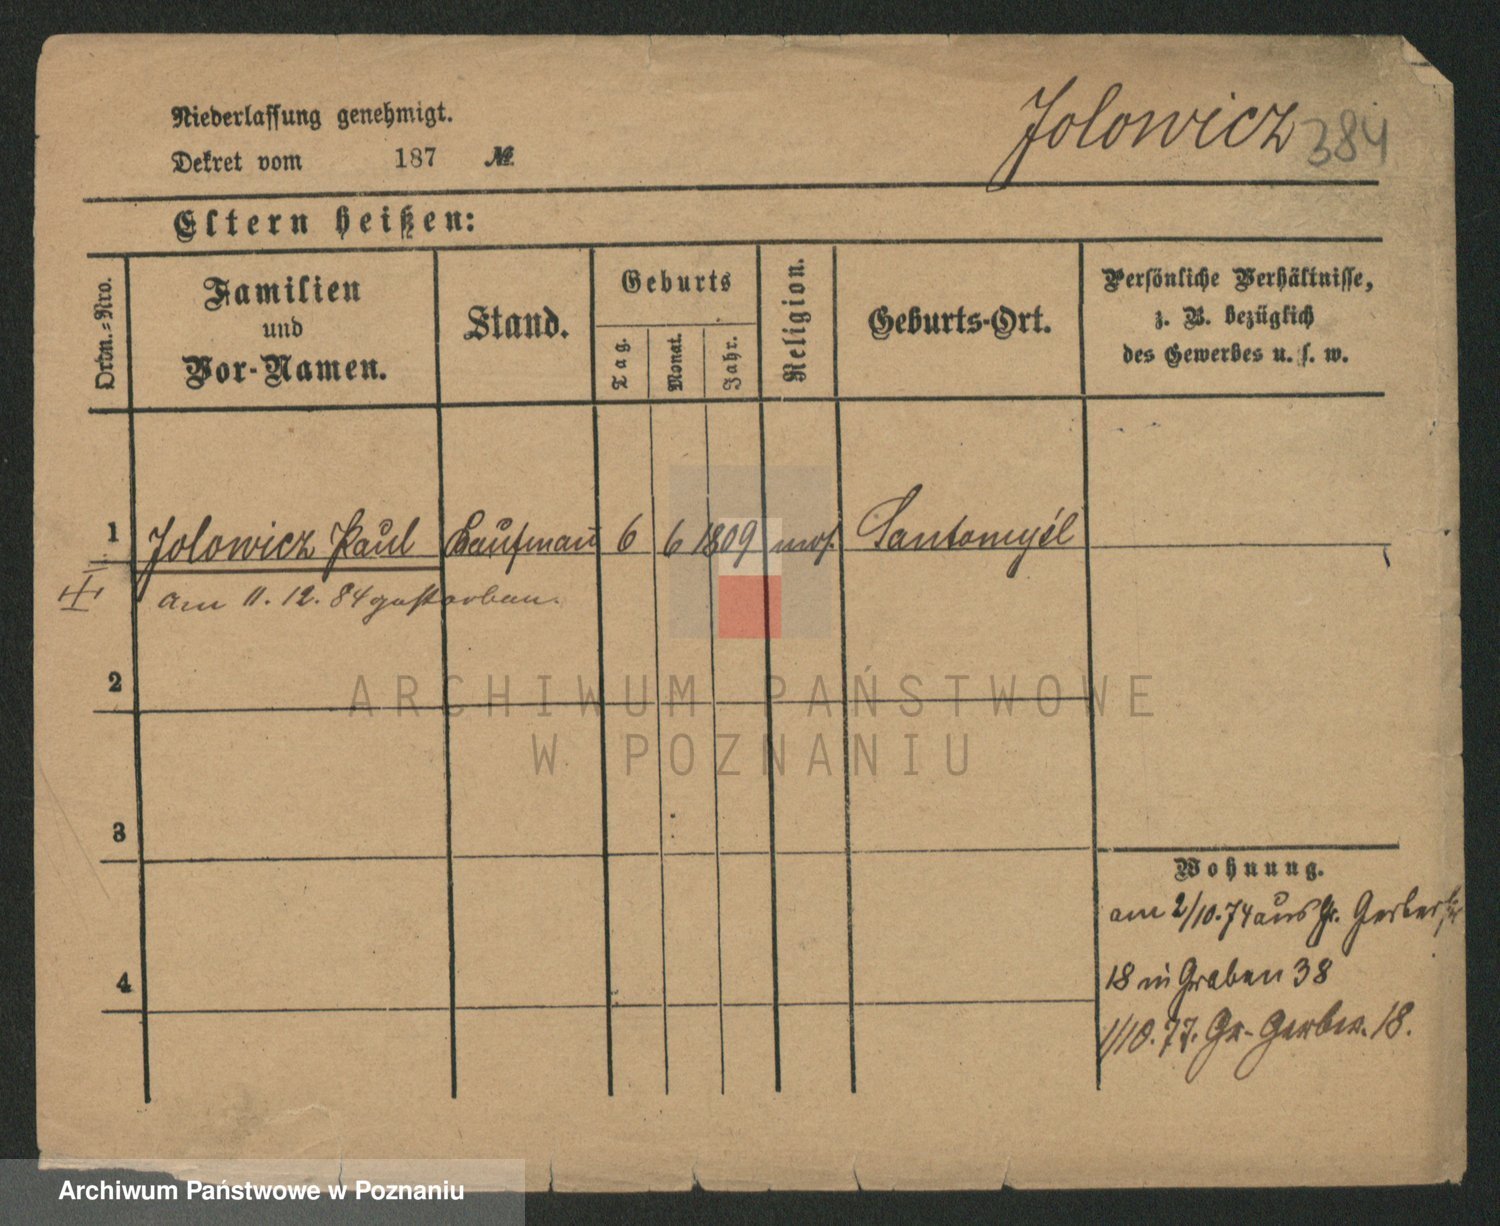 Niederlassung genehmigt.
Dekret vom 187 №
Jolowicz 384
Eltern heißen:
Ordn.-Nro.
Familien
und
Vor-Namen.
Stand.
Geburts
Tag.
Monat.
Jahr.
Religion.
Geburts-Ort.
Persönliche Verhältnisse,
z. B. bezüglich
des Gewerbes u. s. w.
1 Jolowicz Paul Kaufmann 6 6 1809 mos. Santomyśl
am 11. 12. 84 gestorben.
2
ARCHIWUM PAŃSTWOWE
W POZNANIU
3
Wohnung.
am 2/10.74 aus Gr. Gerberstr
18 in Graben 38
4
1/10.77. Gr. Gerber. 18.
Archiwum Państwowe w Poznaniu